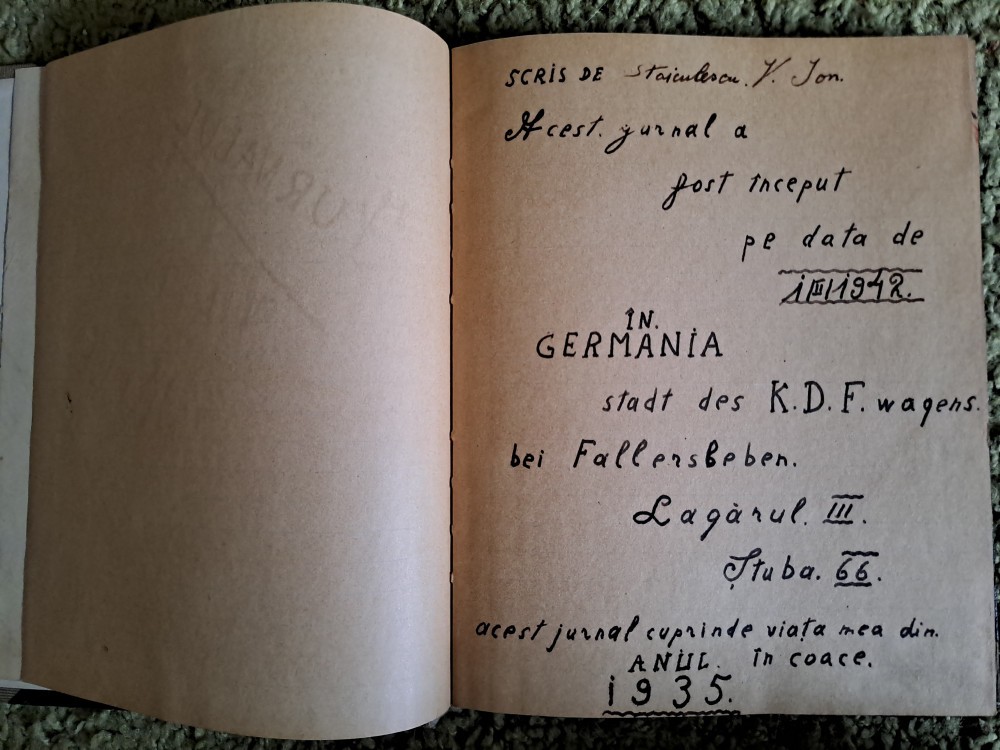 SCRIS DE Staiculescu. V. Ion.
Acest. jurnal a
fost început
pe data de
1/III/1942.
ÎN.
GERMANIA
stadt des K.D.F. wagens.
bei Fallersleben.
Lagărul. III.
Ștuba. 66.
acest jurnal cuprinde viața mea din.
ANUL. în coace.
1935.